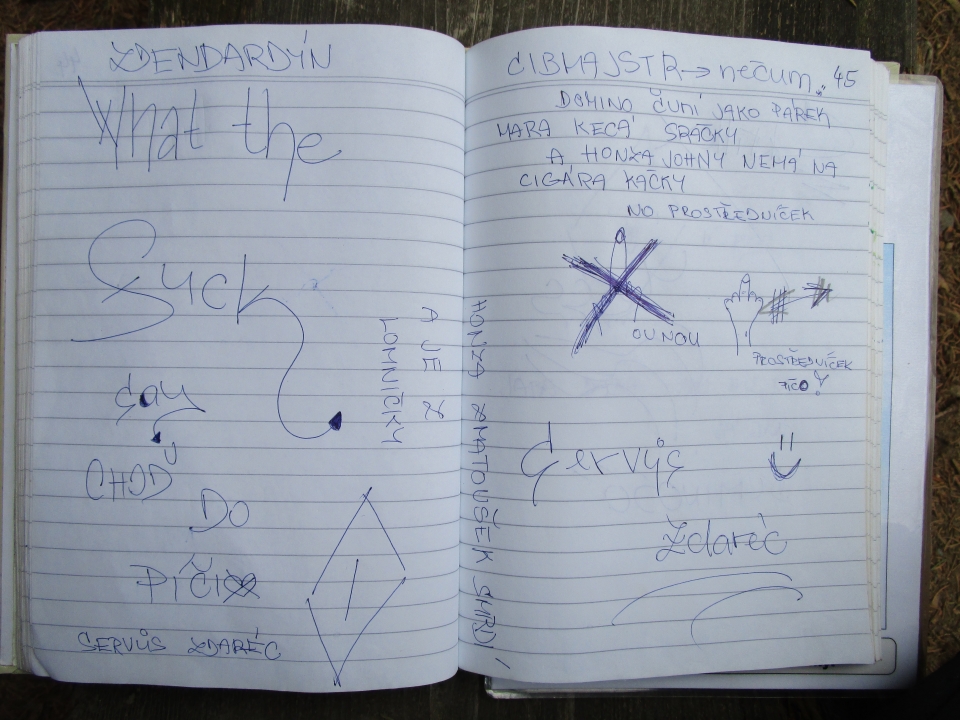 ZDENDARDÝN
What the
Suck
Gay
CHOĎ
DO
PÍČI
SERVŮS ZDARÉC
A JE Z
LOMNIČKY
HONZA ZMATOUŠEK SMRDÍ
CIBMAJSTR → nečum 45
DOMINO ČUNÍ JAKO PÁREK
MARA KECÁ SRÁČKY
A HONZA JOHNY NEMÁ NA
CIGÁRA KAČKY
NO PROSTŘEDNÍČEK
OU NOU
PROSTŘEDNÍČEK
PÍČO!
Servůs
Zdaréc